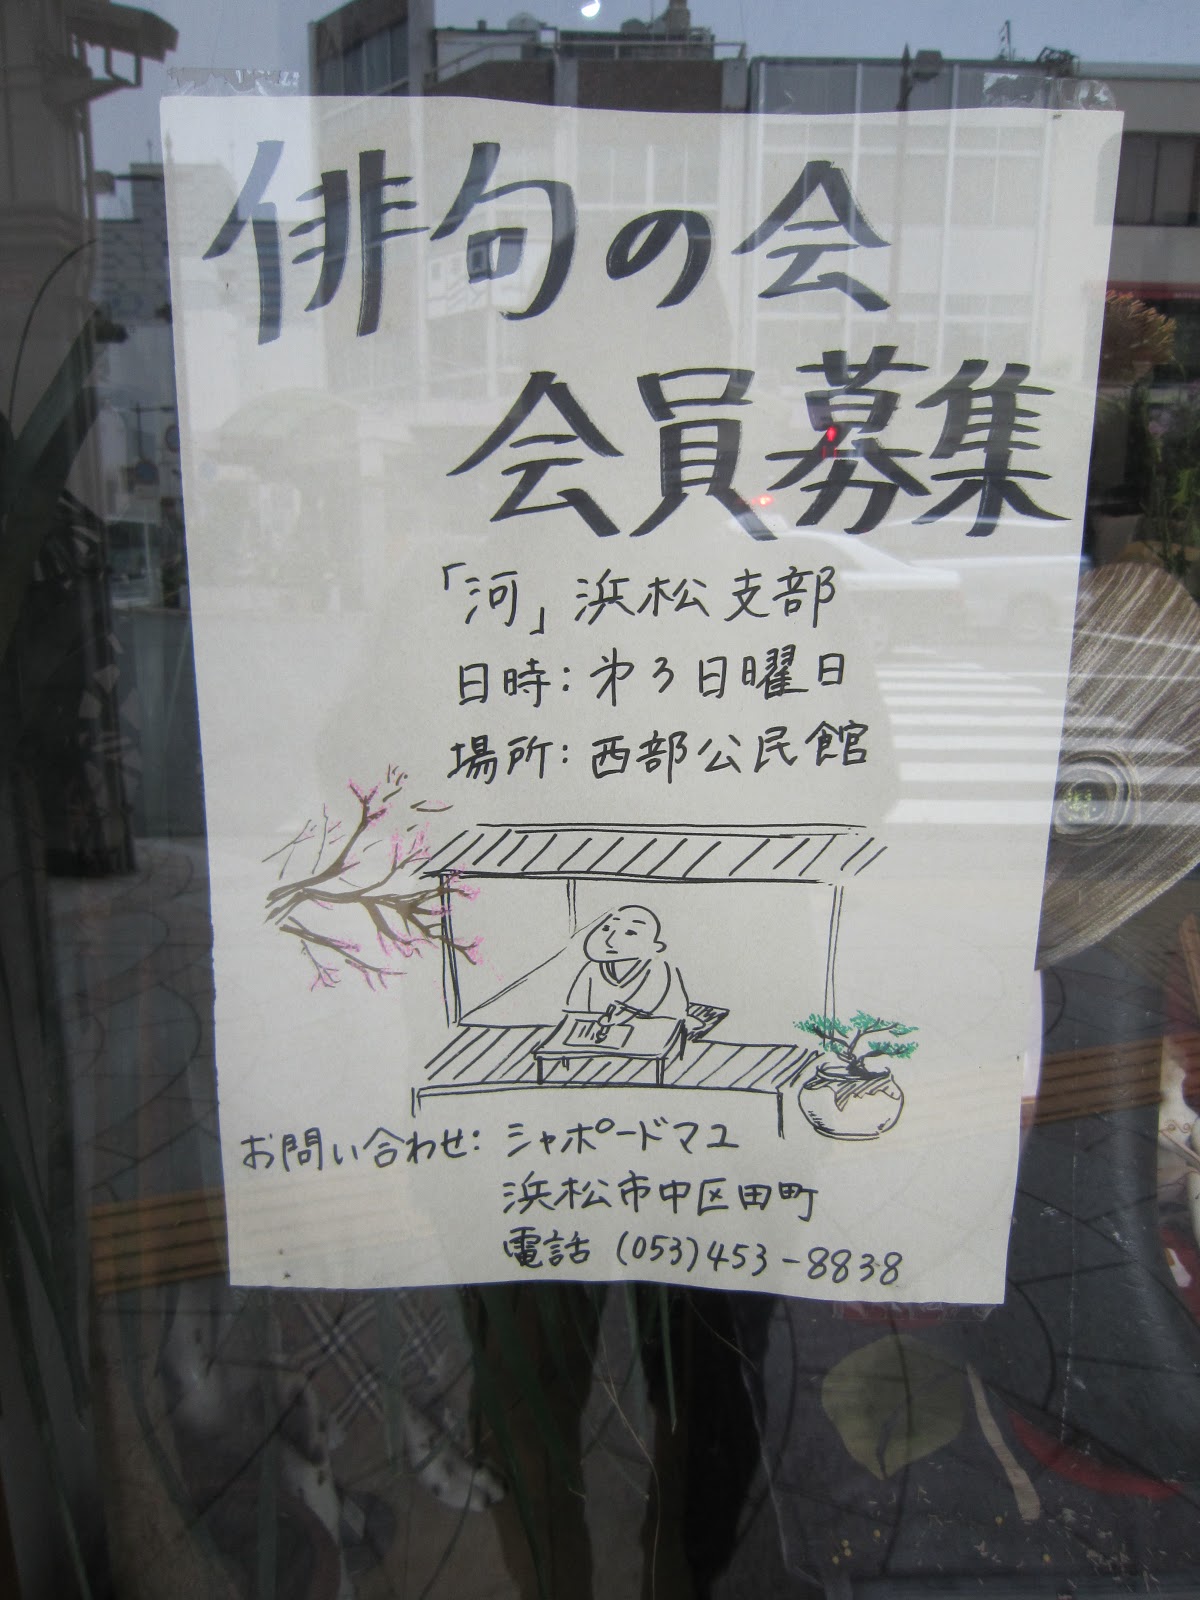 俳句の会
会員募集
「河」浜松支部
日時:第3日曜日
場所:西部公民館
お問い合わせ:シャポードマユ
浜松市中区田町
電話 (053)453-8838